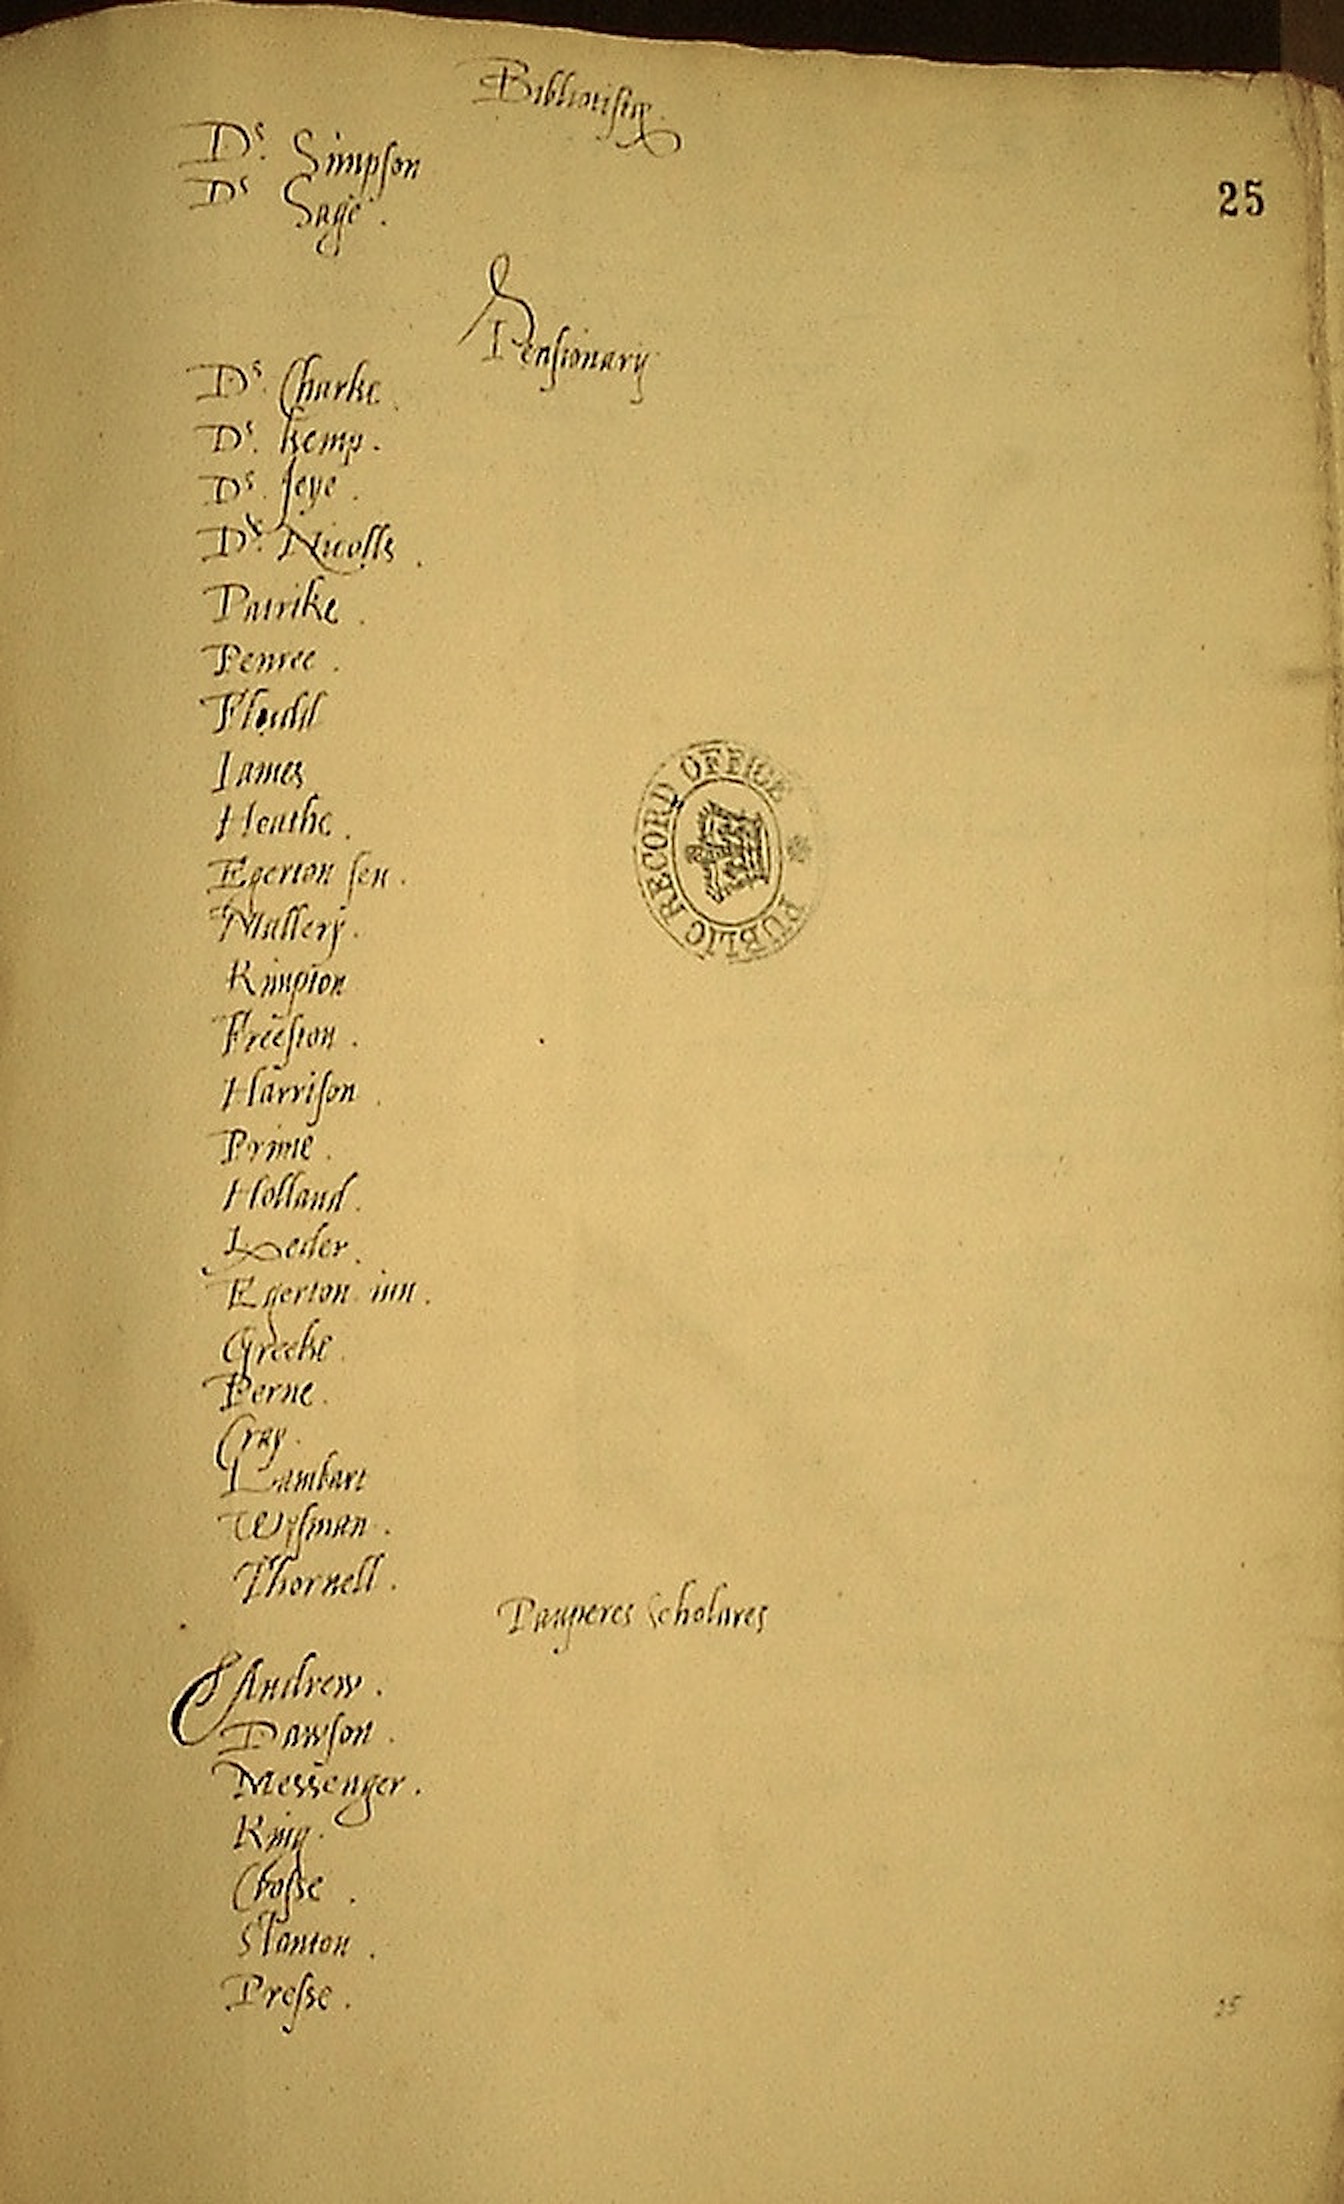 Bibliotistæ
Ds. Simpson
25
Ds Sage.
Pensionarij
Ds. Charke.
Ds. Kemp.
Ds. Jeye.
Ds. Nicolls.
Patrike.
Penree.
Fludd
James
Heathe.
Egerton sen.
Mallery.
Kimpton
Freeston.
Harrison.
Prime.
Holland.
Leder.
Egerton iun.
Greeke.
Perne.
Cray.
Lambart
Wysman.
Thornell.
Pauperes Scholares
Andrew.
Dawson.
Messenger.
King.
Crosse.
Stanton.
Presse.
25
PUBLIC RECORD OFFICE